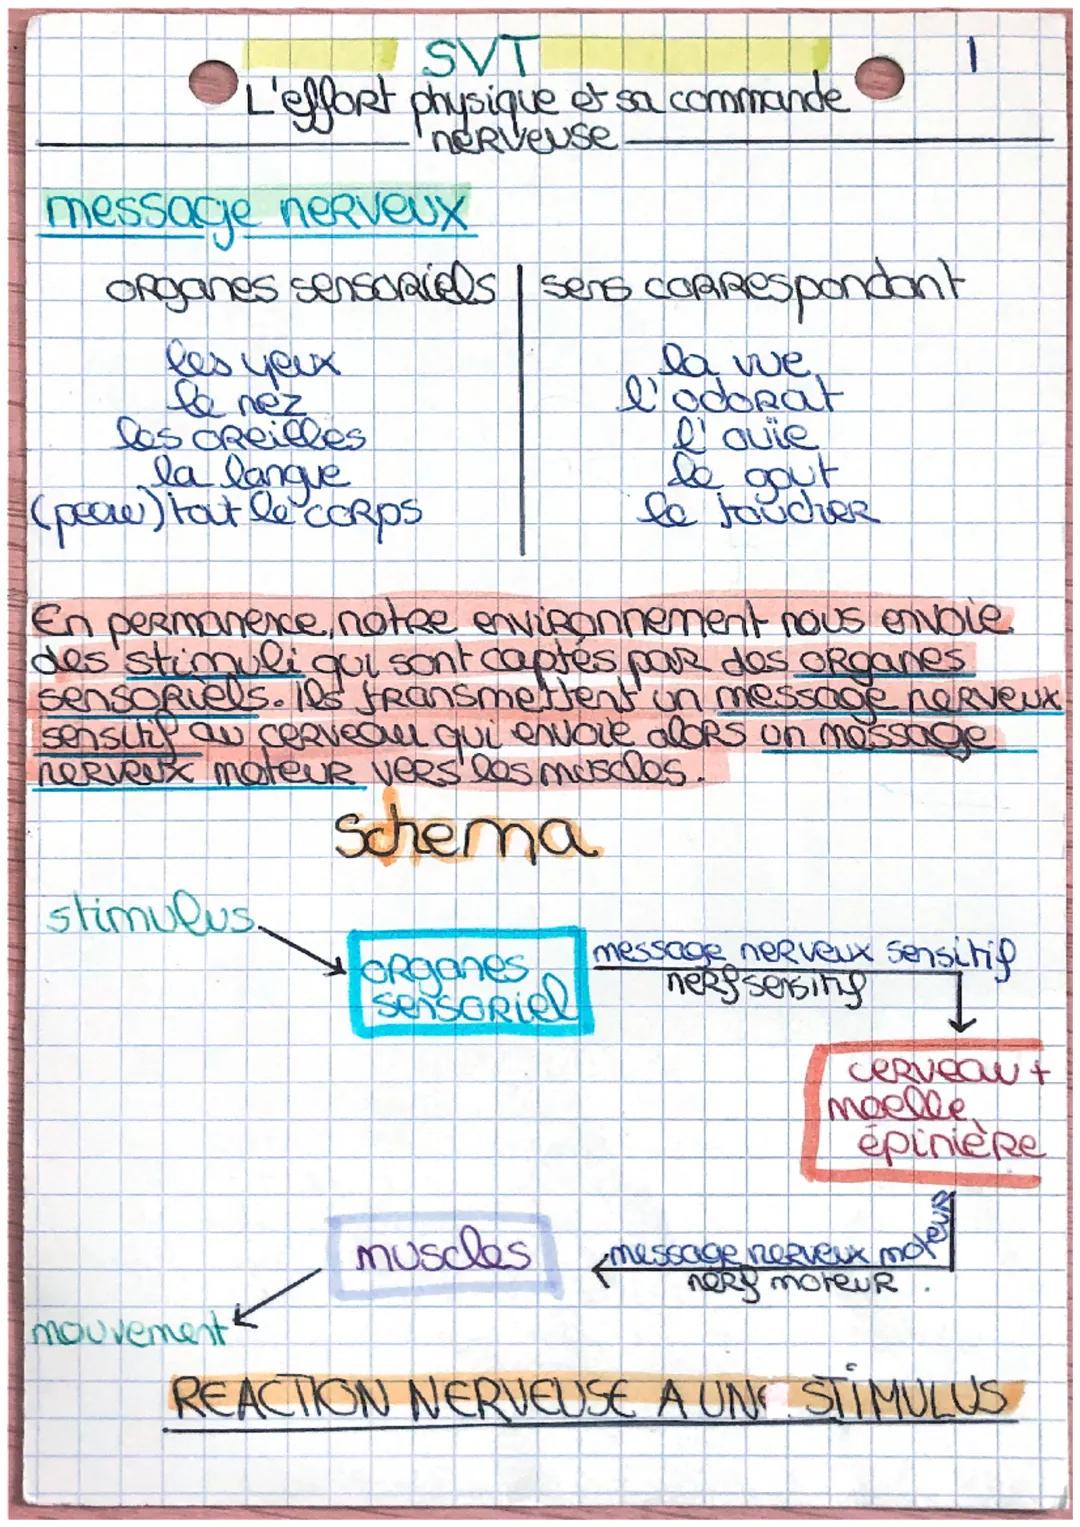 SVT
1
L'effort physique et sa commande
nerveuse
message nerveux
organes sensoriels | sens correspondant
les yeux
la vue
le nez
l'odorat
les oreilles
l'ouïe
la langue
le gout
(peau) tout le corps
le toucher
En permanence, notre environnement nous envoie
des stimuli qui sont captés par des organes
sensoriels. Ils transmettent un message nerveux
sensitif au cerveau qui envoie alors un message
nerveux moteur vers les muscles.
Schema
stimulus
organes
sensoriel
message nerveux sensitif
nerf sensitif
cerveau +
moelle
épinière
message nerveux moteur
nerf moteur
muscles
mouvement
REACTION NERVEUSE A UN STIMULUS